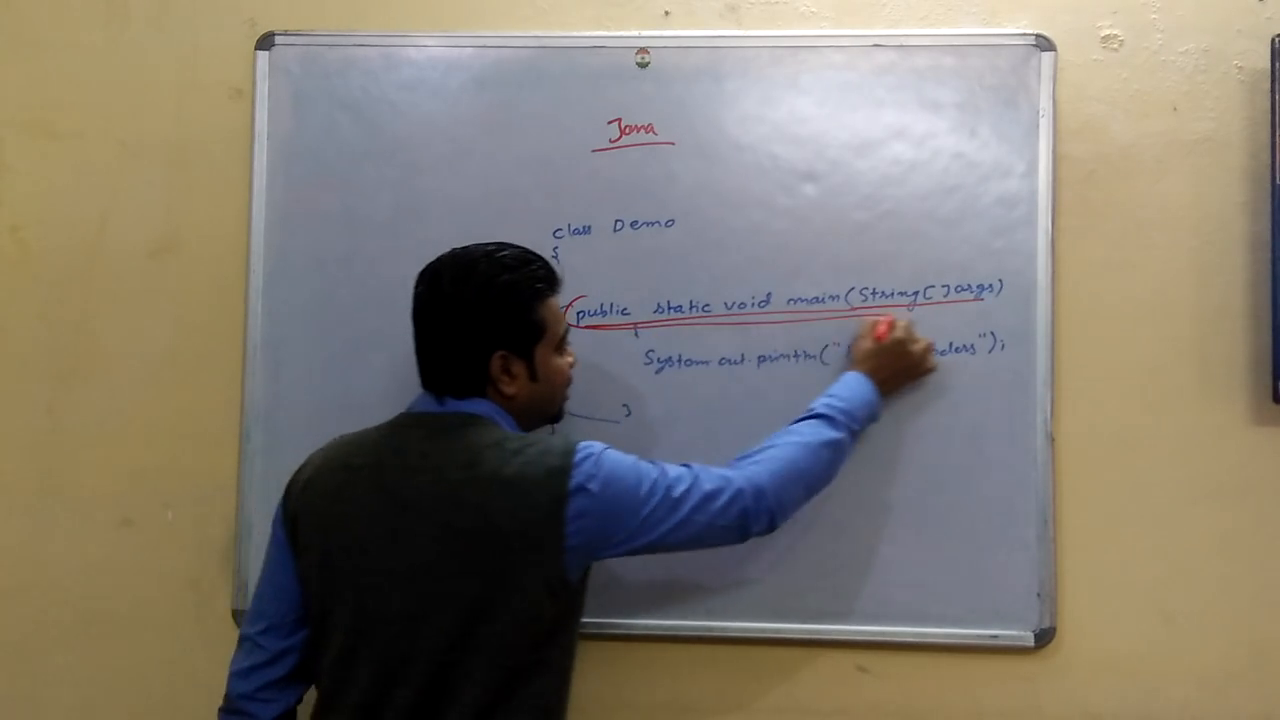 Java
class Demo
{
public static void main(String[]args)
{
System.out.println(" ");
}
}